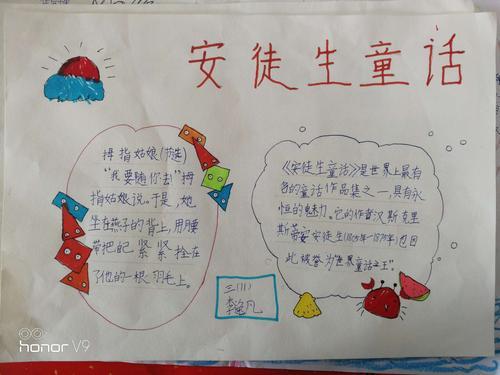 安徒生童话
拇指姑娘(节选)
"我要随你去"拇
指姑娘说。于是,她
坐在燕子的背上,用腰
带把自己紧紧拴在
了他的一根羽毛上。
《安徒生童话》是世界上最有
名的童话作品集之一,具有永
恒的魅力。它的作者汉斯克里
斯蒂安安徒生(1805年-1875年)也因
此被誉为"世界童话之王"。
三(11)
honor V9